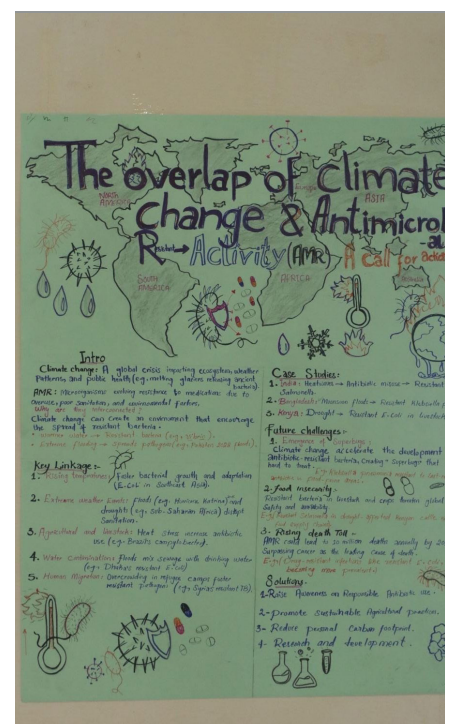 The overlap of climate
change & Antimicrob
Resistant → Activity (AMR) A call for actio
NORTH AMERICA
ASIA
SOUTH AMERICA
AFRICA
Intro
Climate change: A global crisis impacting ecosystem, weather
Patterns, and public health (e.g. melting glaciers releasing ancient
bacteria)
AMR: Microorganisms evolving resistance to medications due to
Overuse, poor sanitation, and environmental factors.
Why are they interconnected?
Climate change can create an environment that encourage
the spread of resistant bacteria.
Key Linkage:-
1. Rising Temperatures: Faster bacterial growth and adaptation
(E.coli in Southeast Asia).
2. Extreme weather Events: Floods (e.g. Hurricane Katrina) and
droughts (e.g. Sub-Saharan Africa) disrupt
Sanitation.
3. Agricultural and livestock: Heat stress increase antibiotic
use (e.g. Brazil's campylobacter).
4. Water Contamination: Floods mix sewage with drinking water
(e.g. Dhaka's resistant E.coli)
5. Human Migration: Overcrowding in refugee camps foster
resistant pathogen (e.g. Syria's resistant TB).
Case Studies:
1. India: Heatwaves → Antibiotic misuse → Resistant
Salmonella.
2. Bangladesh: Monsoon floods → Resistant
3. Kenya: Drought → Resistant E.coli in livestock
Future challenges:-
1. Emergence of Superbugs:
Climate change accelerate the development
Antibiotic-resistant bacteria, Creating "Superbugs" that
hard to treat.
2. Food insecurity:
Resistant bacteria in livestock and crops threaten global
Safety and availability
3- Rising death Toll -
AMR could lead to 10 million deaths annually by 20
Surpassing Cancer as the leading cause of death.
Solutions:-
1- Raise Awareness on Responsible Antibiotic use.
2- promote Sustainable Agricultural practices.
3- Reduce personal Carbon footprint.
4- Research and development.